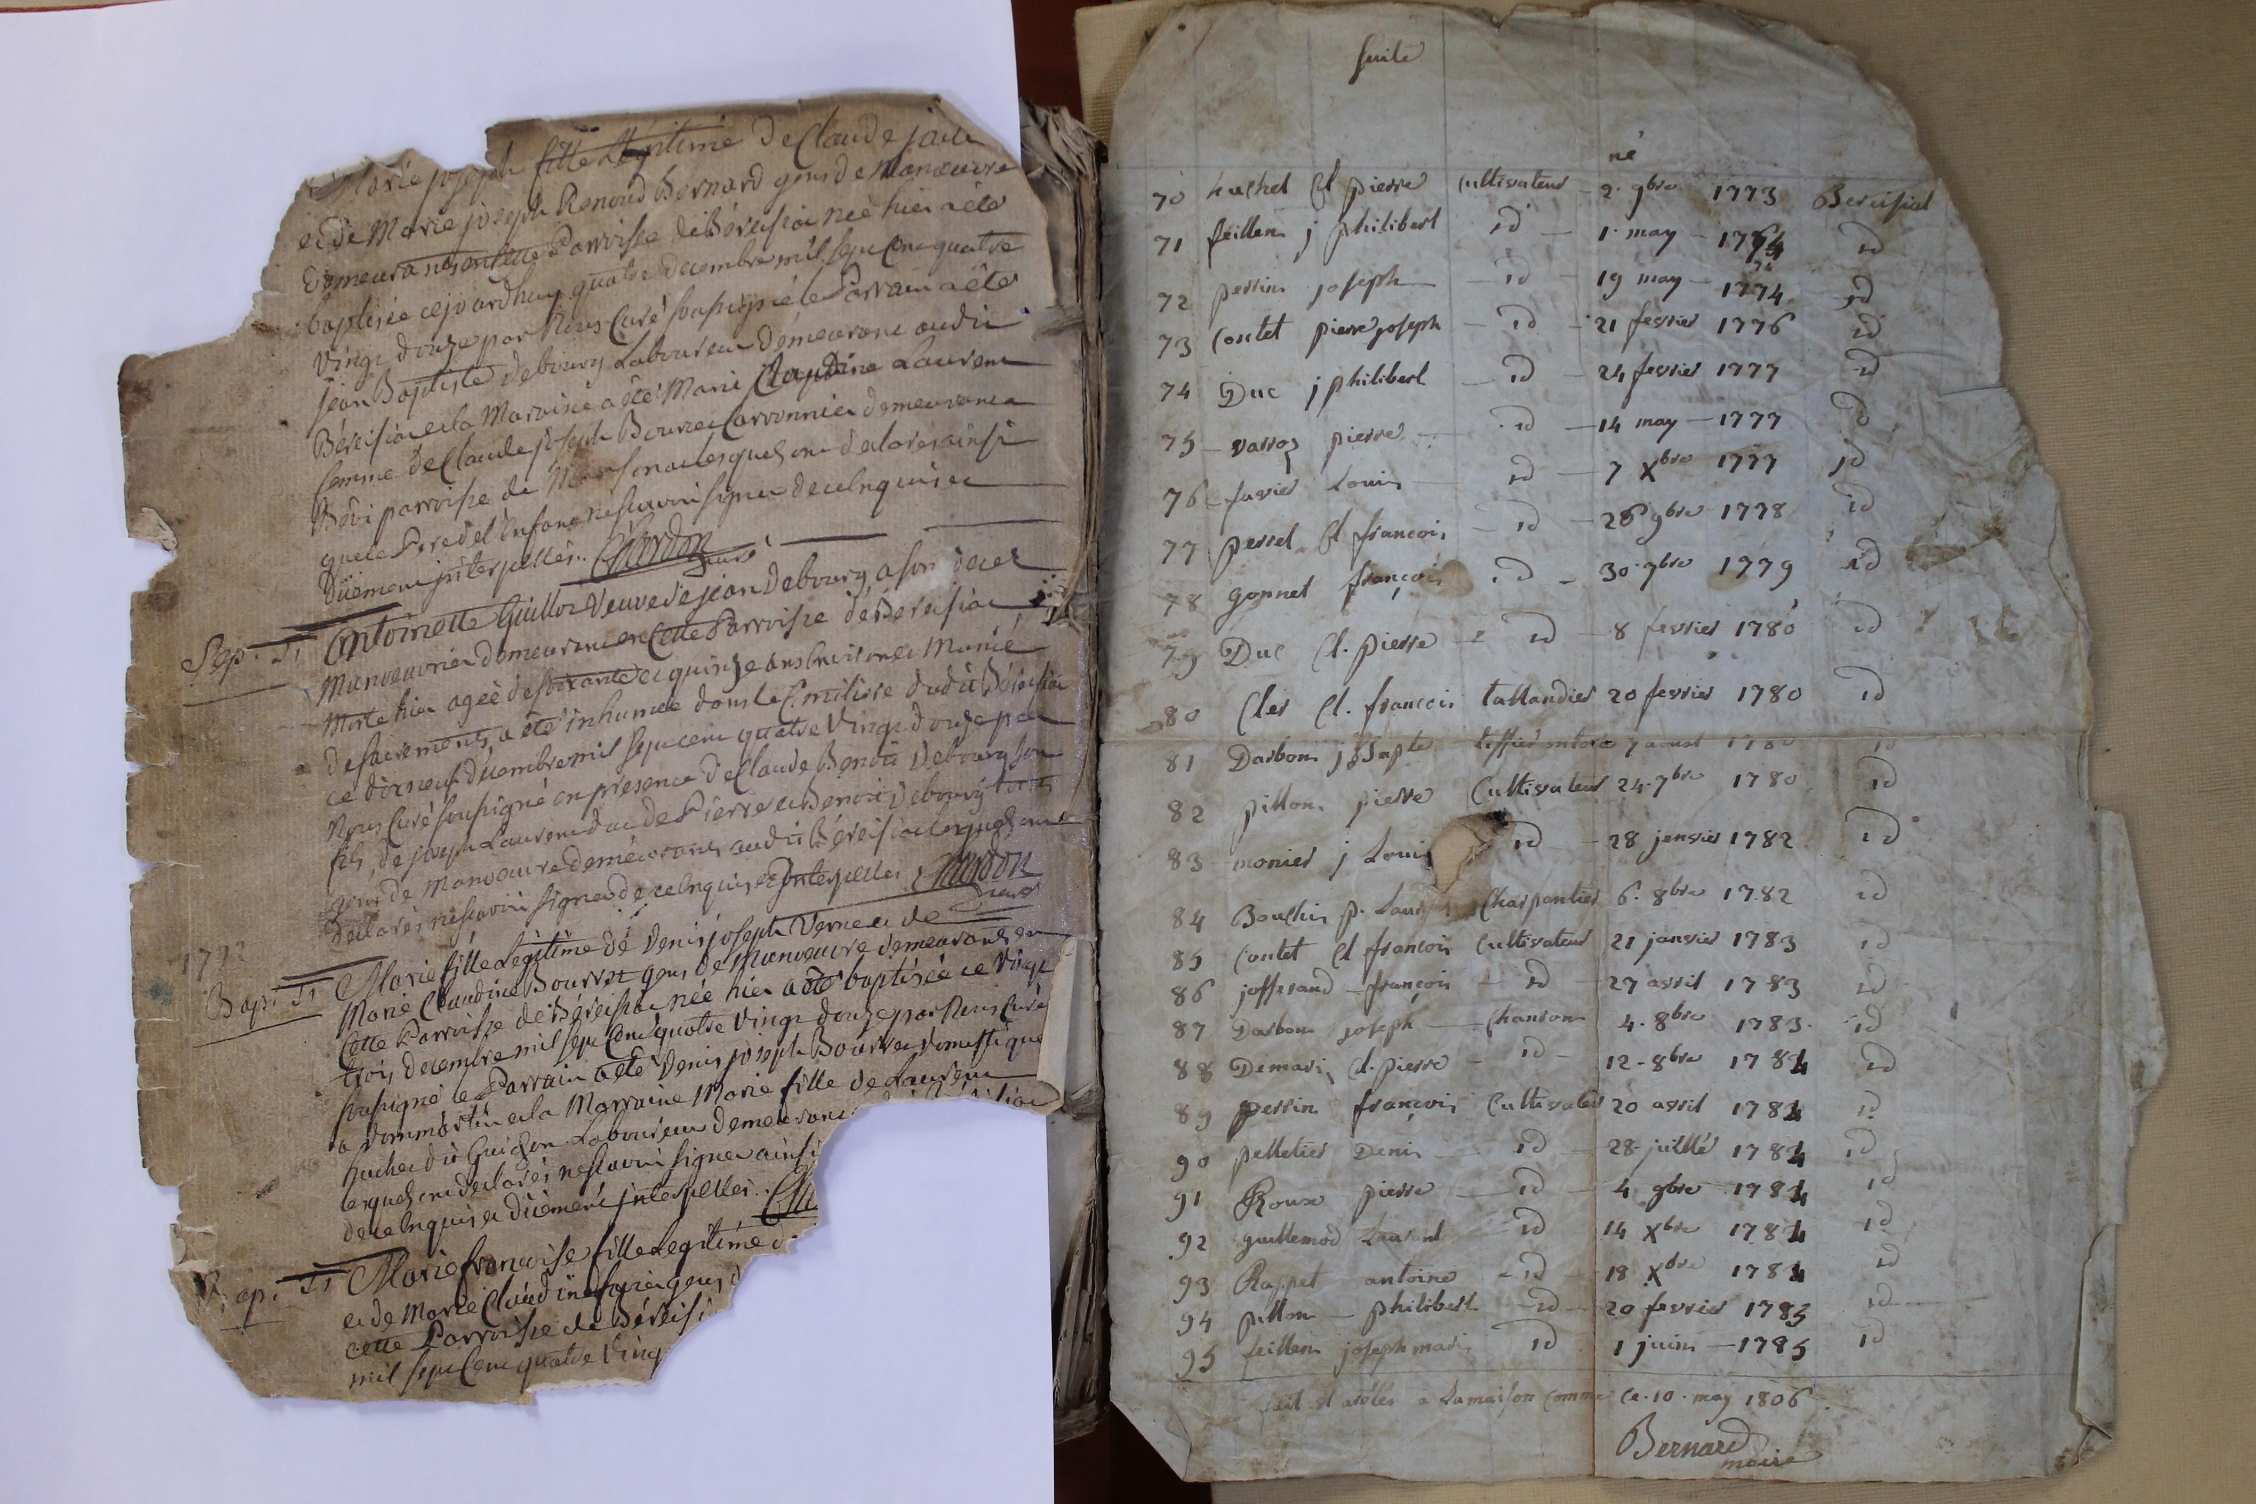 Marie joseph fille Legitime de Claude
et de Marie joseph Renoud Bernard gens de Manoeuvre
demeurants en cette Parroisse de Béreisia née hier a été
baptisée cejourdhuy quatre decembre mil sept Cent quatre
Vingt douze par Nous Curé soussigné le Parrain a été
jean Baptiste debourg Laboureur demeurant audit
Béreisia et la Maraine a été Marie Claudine Laurent
femme de Claude joseph Bourcet demeurant a
parroisse de lesquels ont declarés ainsi
que le Pere de l'Enfant ne sçavoir signer de ce Enquis et
düement jnterpellés.. Chardon
Curé
Sep. Antoinette Guillot Veuve de jean Debourg a son deces
Manoeuvrier demeurant en Cette Parroisse de Bereisia
Morte hier agée de soixante et quinze ans Environ Munie
de sacrements, a été inhumée dans le Cimitiere dudit Béreisia
ce dix neuf decembre mil sept cent quatre Vingt douze par
Nous Curé soussigné en presence de Claude Benoit Debourg son
fils, de joseph Laurent de Pierre et Benoit Debourg tous
gens de Manoeuvre demeurants audit Béreisia lesquels ont
declarés ne sçavoir signer de ce Enquis et Jnterpellés Chardon
Curé
1792
Bap. Marie fille Legitime de Denis joseph Vernet et de
Marie Claudine Bourcet gens de Manoeuvre demeurants en
Cette Parroisse de Béreisia née hier a été baptisée ce Vingt
trois decembre mil sept Cent quatre Vingt douze par Nous Curé
soussigné le Parrain a été Denis joseph Bourcet domestique
a dommartin et la Marraine Marie fille de Laurent
huchet dit Guichon Laboureur demeurant
lesquels ont declarés ne sçavoir signer ainsi
de ce Enquis et düement jnterpellés.. Ch
Bap. Marie francoise fille Legitime d
et de Marie Claudine gens d
cette Parroisse de Béreisi
mil sept Cent quatre Ving
suite
né
70 huchet Cl pierre Cultivateur 2. 9bre 1773 Bereisiat
71 feillens j philibert id 1. may 1774 id
72 perrin joseph id 19 may 1774 id
73 Contet pierre joseph id 21 fevrier 1776 id
74 Duc j philibert id 24 fevrier 1777 id
75 varroz pierre id 14 may 1777 id
76 favier Louis id 7 Xbre 1777 id
77 perret Cl francois id 28 9bre 1778 id
78 gonnet françois id 30. 7bre 1779 id
79 Duc Cl. pierre id 8 fevrier 1780 id
80 Cler Cl. francois tallandier 20 fevrier 1780 id
81 Darbon j Bapte 7 aoust 1780 id
82 pillon pierre Cultivateur 24. 7bre 1780 id
83 monier j Louis id 28 jenvier 1782 id
84 Bouchin p. Charpentier 6. 8bre 1782 id
85 Contet Cl francois Cultivateur 21 janvier 1783 id
86 jofferand françois id 27 avril 1783 id
87 Darbon joseph Chanron 4. 8bre 1783. id
88 Demaris Cl. pierre id 12. 8bre 1784 id
89 perrin françois Cultivateur 20 avril 1784 id
90 pelletier Denis id 28. juillé 1784 id
91 Roux pierre id 4. 9bre 1784 id
92 guillemod Laurent id 14 Xbre 1784 id
93 Rappet antoine id 18 Xbre 1784 id
94 pillon philibert id 20 fevrier 1785 id
95 feillens joseph marie id 1 juin 1785 id
fait et aretes a Lamaison Commune Ce. 10. may 1806
Bernard
maire